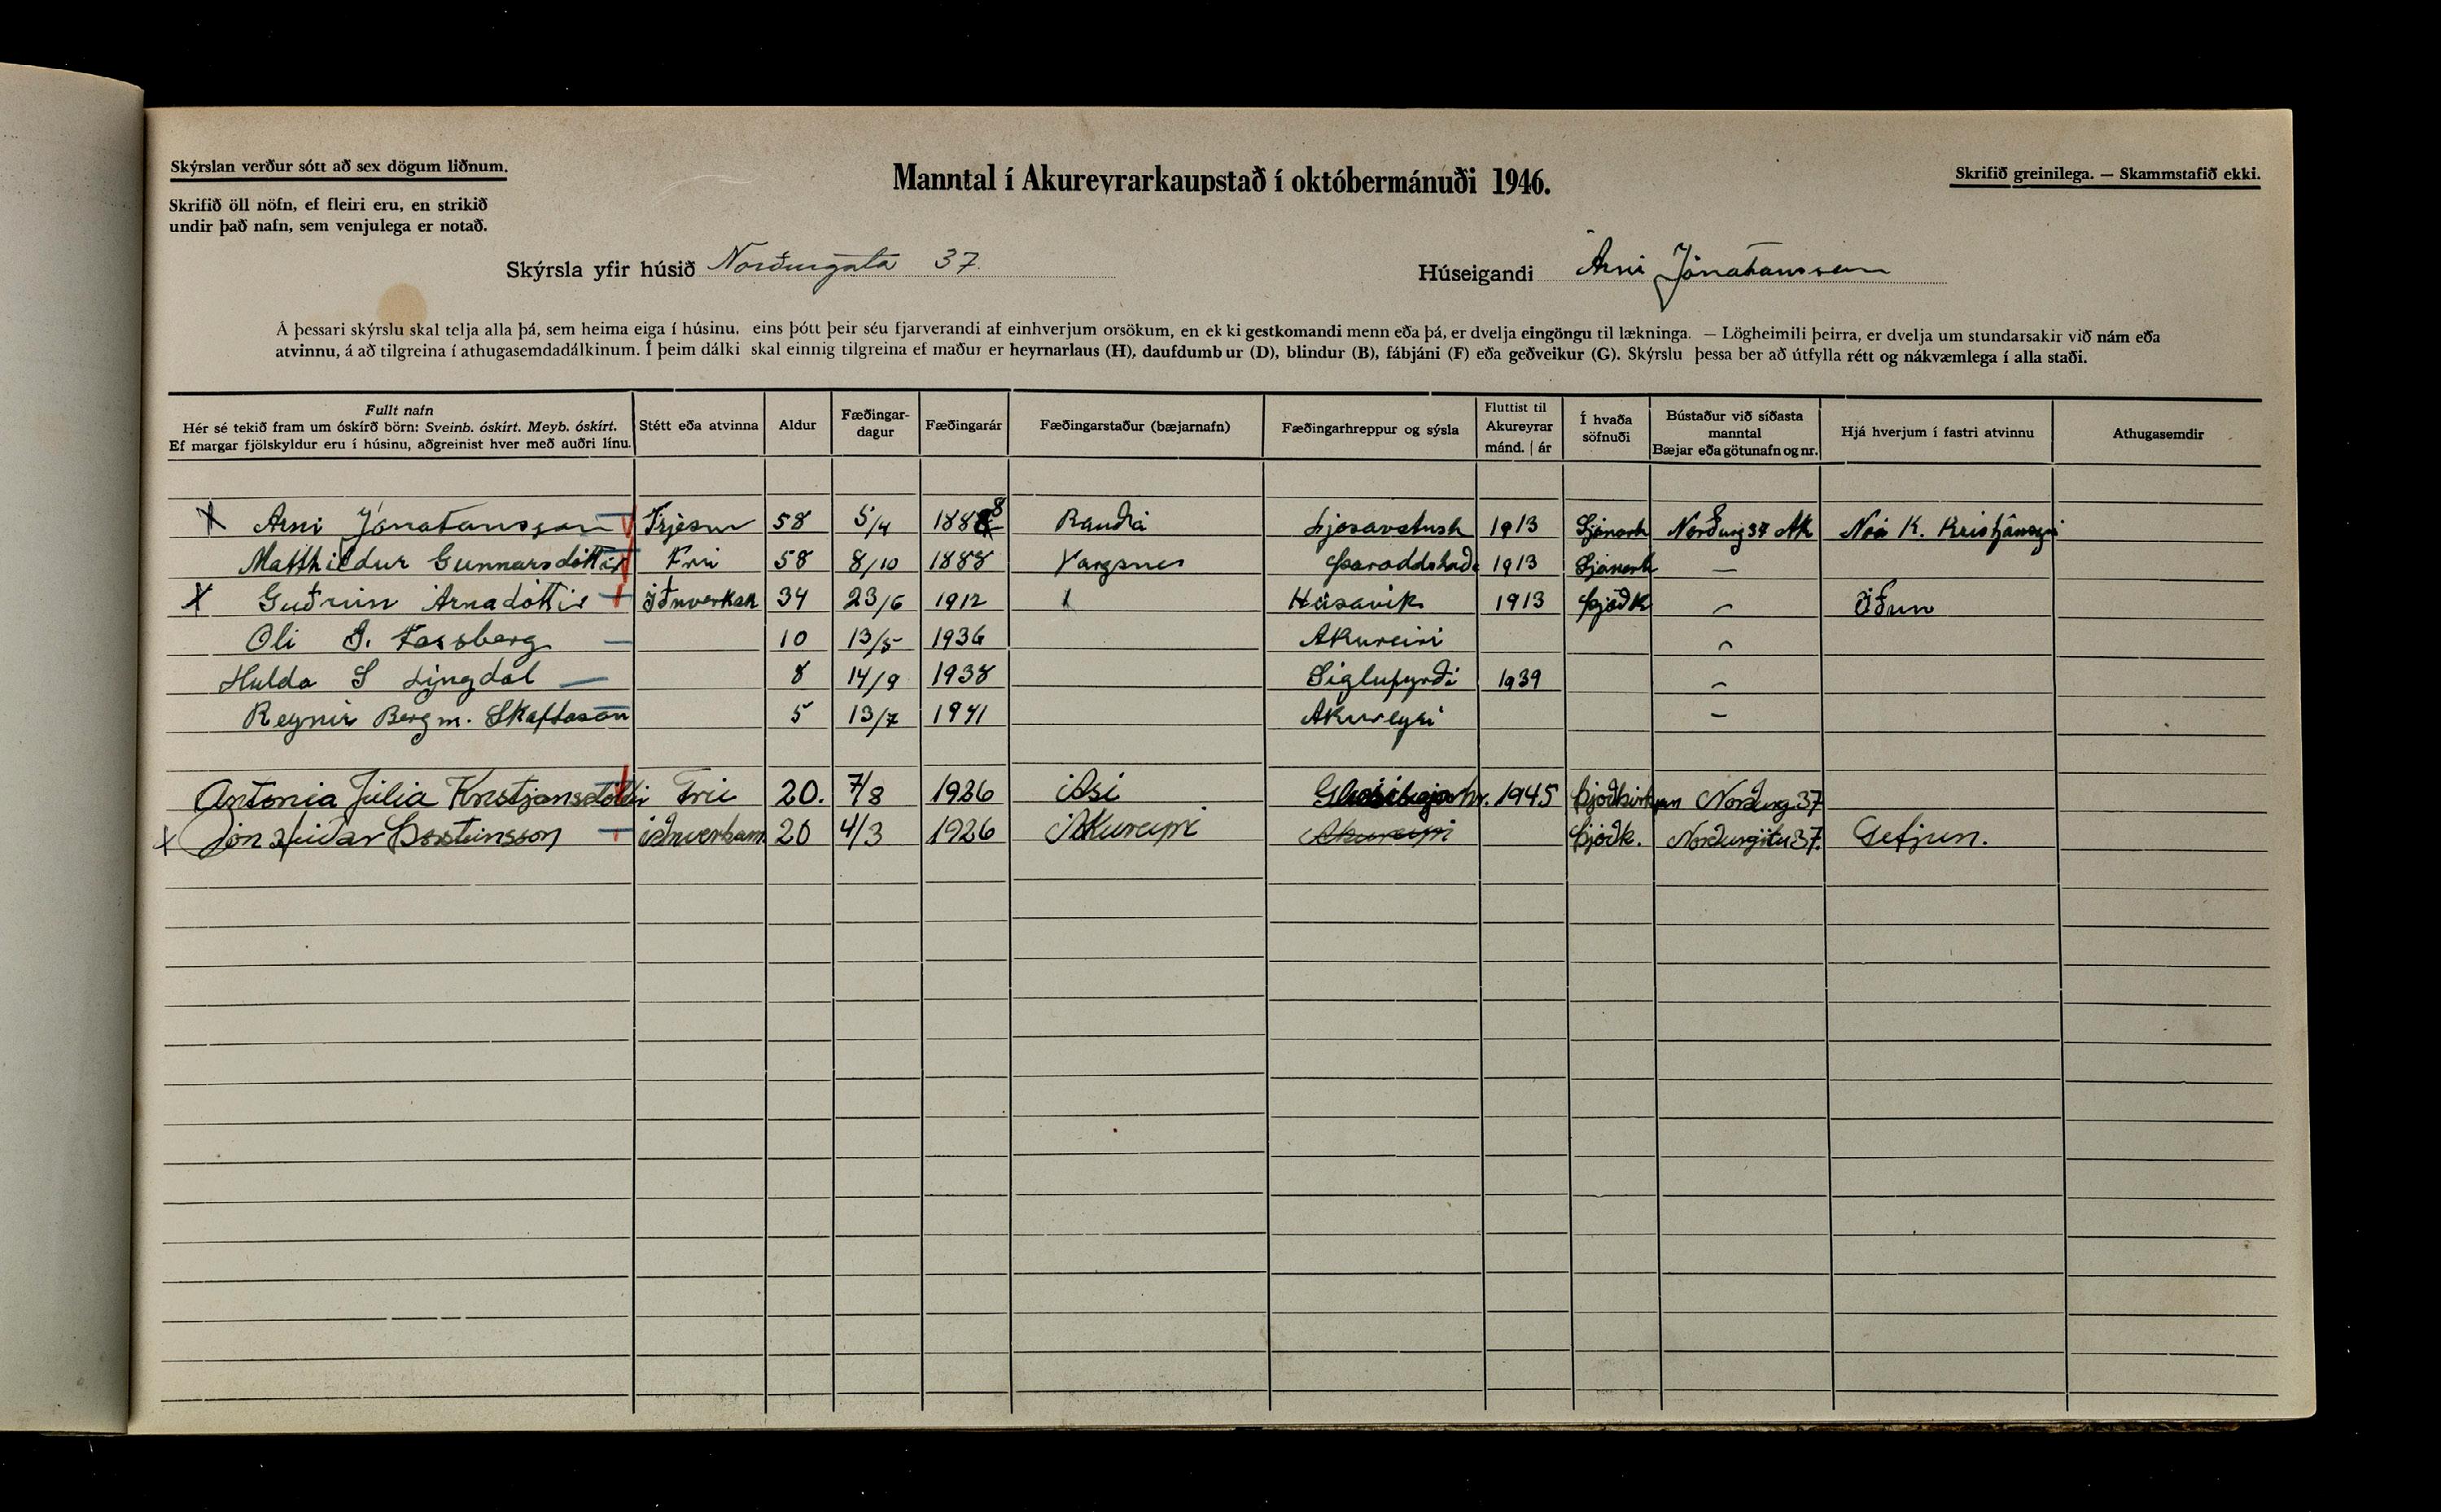 Skýrslan verður sótt að sex dögum liðnum.
Manntal í Akureyrarkaupstað í októbermánuði 1946.
Skrifið greinilega. — Skammstafið ekki.
Skrifið öll nöfn, ef fleiri eru, en strikið
undir það nafn, sem venjulega er notað.
Skýrsla yfir húsið Norðurgata 37.
Húseigandi Árni Jónatansson
Á þessari skýrslu skal telja alla þá, sem heima eiga í húsinu, eins þótt þeir séu fjarverandi af einhverjum orsökum, en ekki gestkomandi menn eða þá, er dvelja eingöngu til lækninga. — Lögheimili þeirra, er dvelja um stundarsakir við nám eða
atvinnu, á að tilgreina í athugasemdadálkinum. Í þeim dálki skal einnig tilgreina ef maður er heyrnarlaus (H), daufdumbur (D), blindur (B), fábjáni (F) eða geðveikur (G). Skýrslu þessa ber að útfylla rétt og nákvæmlega í alla staði.
Fullt nafn
Hér sé tekið fram um óskírð börn: Sveinb. óskírt. Meyb. óskírt.
Ef margar fjölskyldur eru í húsinu, aðgreinist hver með auðri línu.
Stétt eða atvinna
Aldur
Fæðingar-
dagur
Fæðingarár
Fæðingarstaður (bæjarnafn)
Fæðingarhreppur og sýsla
Fluttist til
Akureyrar
mánd. | ár
Í hvaða
söfnuði
Bústaður við síðasta
manntal
Bæjar eða götunafn og nr.
Hjá hverjum í fastri atvinnu
Athugasemdir
X Arni Jónatansson 58 5/4 1888 Rauðá 1913 Norðurg 37 Ak Nóa K. Kristjánssyni
Matthildur Gunnarsdóttir Frú 58 8/10 1888 Vargsnes 1913 —
X Guðrún Arnadóttir Iðnverksk 34 23/6 1912 Húsavík 1913 Þjóðk — Iðun
Oli G. Fossberg 10 13/5 1936 Akureiri —
Hulda S Lyngdal 8 14/9 1938 Siglufyrði 1939 —
Reynir Bergm. Skaftason 5 13/7 1941 Akureyri —
Antonia Júlia Kristjansdóttir Frú 20. 7/8 1926 1945 Þjóðkirkjan Norðurg 37
X Jón Heiðar Þorsteinsson iðnverkam. 20 4/3 1926 Akureyri Akureyri Þjóðk. Norðurgötu 37. Gefjun.